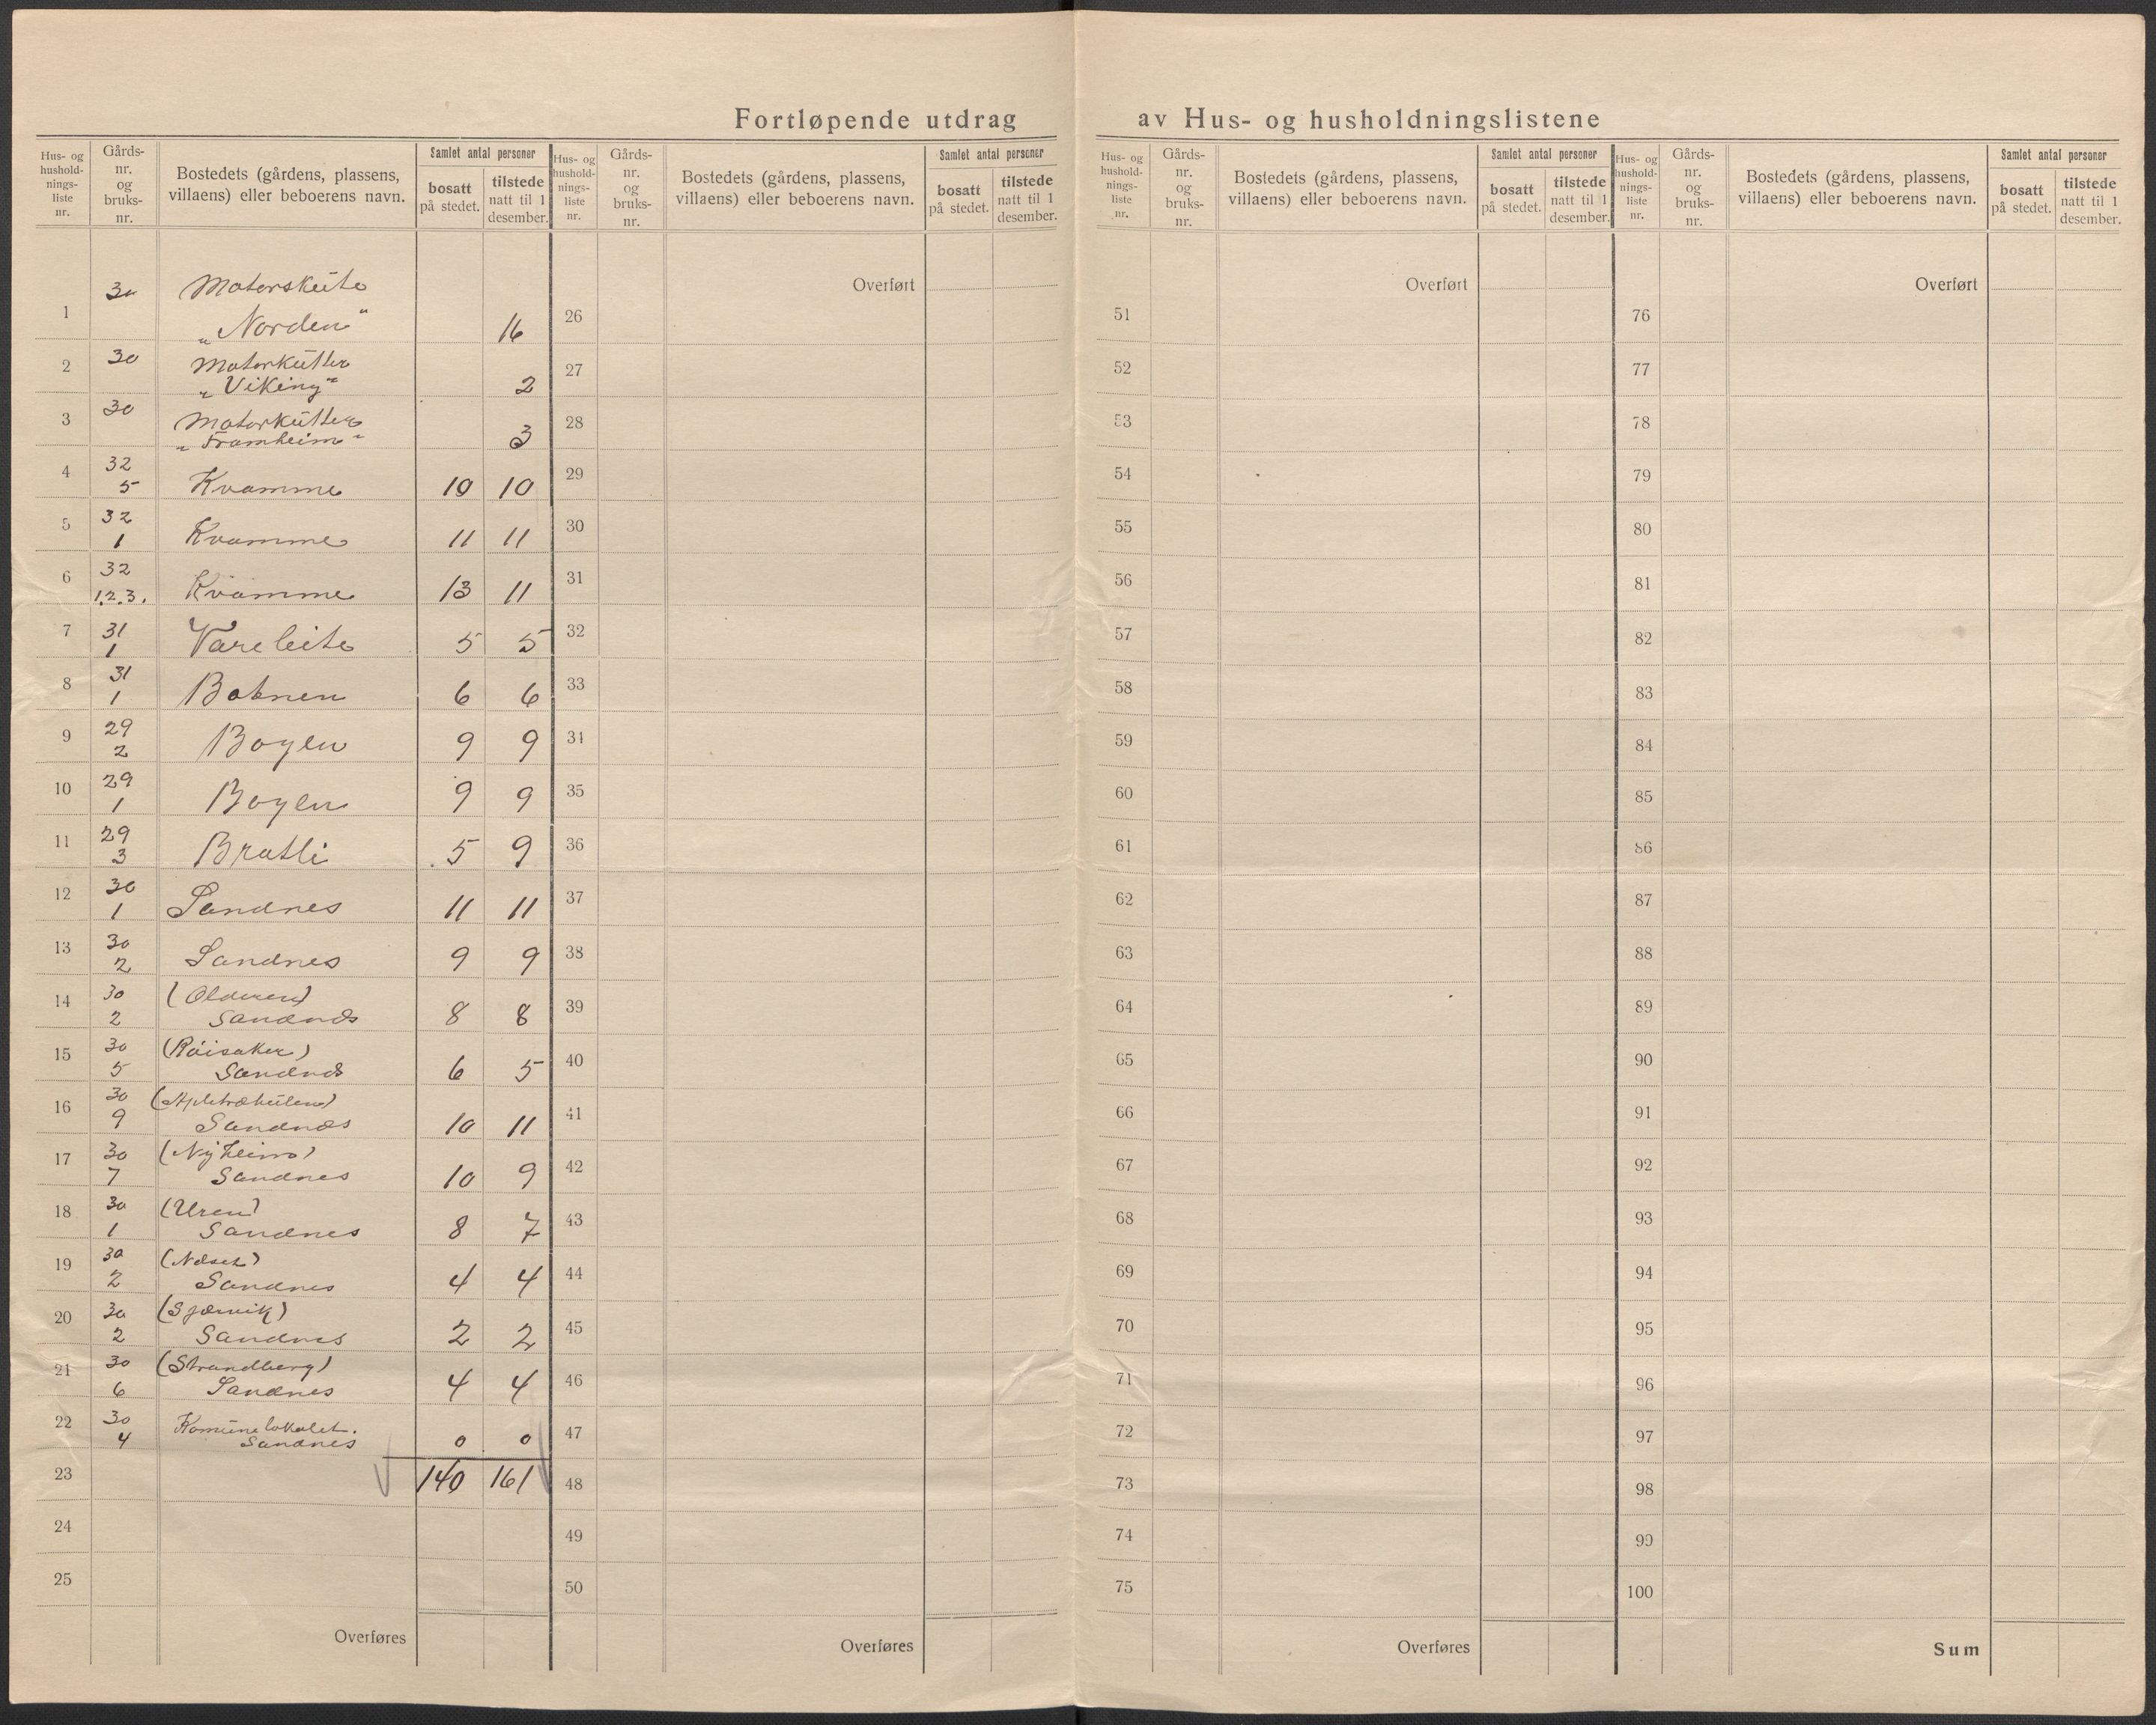 Fortløpende utdrag av Hus- og husholdningslistene
Hus- og husholdnings-liste nr. | Gårds-nr. og bruks-nr. | Bostedets (gårdens, plassens, villaens) eller beboerens navn. | Samlet antal personer | bosatt på stedet. | tilstede natt til 1 desember.
Hus- og husholdnings-liste nr. | Gårds-nr. og bruks-nr. | Bostedets (gårdens, plassens, villaens) eller beboerens navn. | Samlet antal personer | bosatt på stedet. | tilstede natt til 1 desember.
Hus- og husholdnings-liste nr. | Gårds-nr. og bruks-nr. | Bostedets (gårdens, plassens, villaens) eller beboerens navn. | Samlet antal personer | bosatt på stedet. | tilstede natt til 1 desember.
Hus- og husholdnings-liste nr. | Gårds-nr. og bruks-nr. | Bostedets (gårdens, plassens, villaens) eller beboerens navn. | Samlet antal personer | bosatt på stedet. | tilstede natt til 1 desember.
1 30 Motorskute
„Norden" 16
2 30 Motorkutter
„Viking" 2
3 30 Motorkutter
„Framheim" 3
4 32
5 Kvamme 10 10
5 32
1 Kvamme 11 11
6 32
1.2.3. Kvamme 13 11
7 31
1 Vareleite 5 5
8 31
1 Botnen 6 6
9 29
2 Bogen 9 9
10 29
1 Bogen 9 9
11 29
3 Bratli 5 9
12 30
1 Sandnes 11 11
13 30
2 Sandnes 9 9
14 30 (Olderen)
2 Sandnes 8 8
15 30 (Röisaker)
5 Sandnes 6 5
16 30
9 Sandnæs 10 11
17 30 (Nyheim)
7 Sandnes 10 9
18 30 (Uren)
1 Sandnes 8 7
19 30 (Neset)
2 Sandnes 4 4
20 30 (Sjørvik)
2 Sandnes 2 2
21 30 (Strandberg)
6 Sandnes 4 4
22 30 Komunelokalet.
4 Sandnes 0 0
23 140 161
24
25
Overføres
Overført
26
27
28
29
30
31
32
33
34
35
36
37
38
39
40
41
42
43
44
45
46
47
48
49
50
Overføres
Overført
51
52
53
54
55
56
57
58
59
60
61
62
63
64
65
66
67
68
69
70
71
72
73
74
75
Overføres
Overført
76
77
78
79
80
81
82
83
84
85
86
87
88
89
90
91
92
93
94
95
96
97
98
99
100
Sum